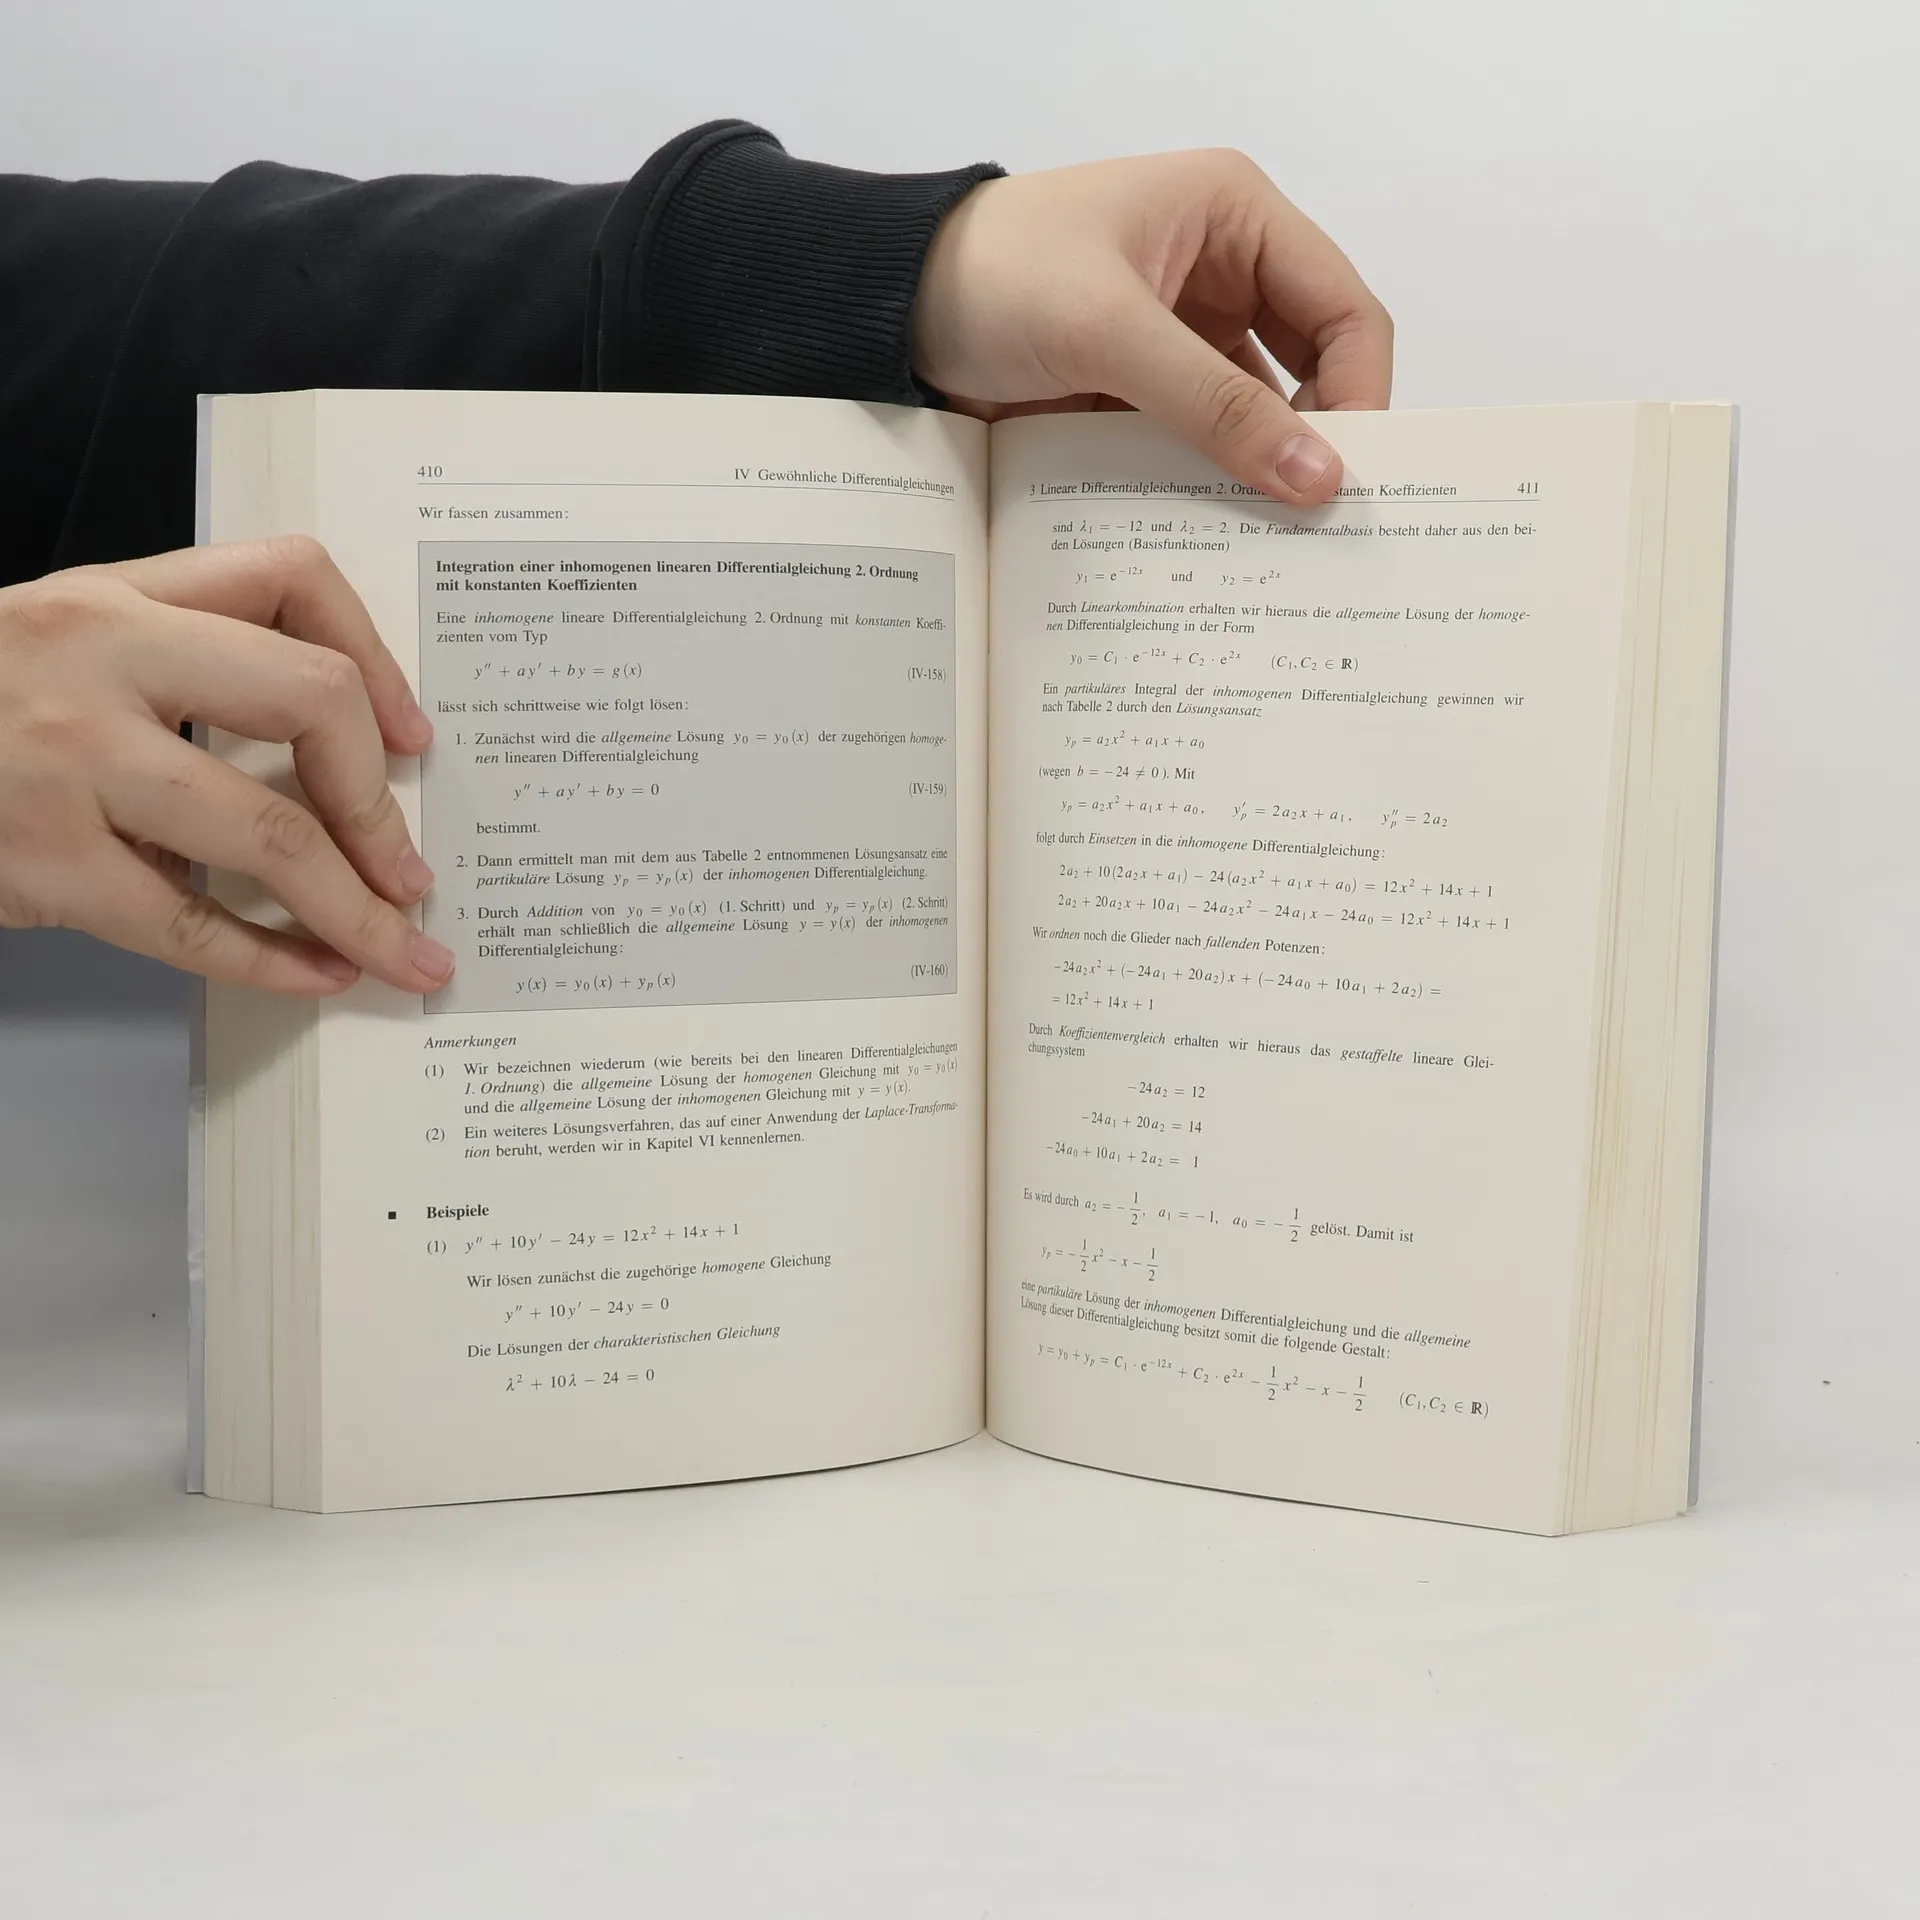 410
IV Gewöhnliche Differentialgleichungen
Wir fassen zusammen:
Integration einer inhomogenen linearen Differentialgleichung 2. Ordnung
mit konstanten Koeffizienten
Eine inhomogene lineare Differentialgleichung 2. Ordnung mit konstanten Koeffi-
zienten vom Typ
y″ + ay′ + by = g(x) (IV-158)
lässt sich schrittweise wie folgt lösen:
1. Zunächst wird die allgemeine Lösung y₀ = y₀(x) der zugehörigen homoge-
nen linearen Differentialgleichung
y″ + ay′ + by = 0 (IV-159)
bestimmt.
2. Dann ermittelt man mit dem aus Tabelle 2 entnommenen Lösungsansatz eine
partikuläre Lösung yₚ = yₚ(x) der inhomogenen Differentialgleichung.
3. Durch Addition von y₀ = y₀(x) (1. Schritt) und yₚ = yₚ(x) (2. Schritt)
erhält man schließlich die allgemeine Lösung y = y(x) der inhomogenen
Differentialgleichung:
y(x) = y₀(x) + yₚ(x) (IV-160)
Anmerkungen
(1) Wir bezeichnen wiederum (wie bereits bei den linearen Differentialgleichungen
1. Ordnung) die allgemeine Lösung der homogenen Gleichung mit y₀ = y₀(x)
und die allgemeine Lösung der inhomogenen Gleichung mit y = y(x).
(2) Ein weiteres Lösungsverfahren, das auf einer Anwendung der Laplace-Transforma-
tion beruht, werden wir in Kapitel VI kennenlernen.
■ Beispiele
(1) y″ + 10y′ − 24y = 12x² + 14x + 1
Wir lösen zunächst die zugehörige homogene Gleichung
y″ + 10y′ − 24y = 0
Die Lösungen der charakteristischen Gleichung
λ² + 10λ − 24 = 0
3 Lineare Differentialgleichungen 2. Koeffizienten 411
sind λ₁ = −12 und λ₂ = 2. Die Fundamentalbasis besteht daher aus den bei-
den Lösungen (Basisfunktionen)
y₁ = e⁻¹²ˣ und y₂ = e²ˣ
Durch Linearkombination erhalten wir hieraus die allgemeine Lösung der homoge-
nen Differentialgleichung in der Form
y₀ = C₁ · e⁻¹²ˣ + C₂ · e²ˣ (C₁, C₂ ∈ ℝ)
Ein partikuläres Integral der inhomogenen Differentialgleichung gewinnen wir
nach Tabelle 2 durch den Lösungsansatz
yₚ = a₂x² + a₁x + a₀
(wegen b = −24 ≠ 0). Mit
yₚ = a₂x² + a₁x + a₀, yₚ′ = 2a₂x + a₁, yₚ″ = 2a₂
folgt durch Einsetzen in die inhomogene Differentialgleichung:
2a₂ + 10(2a₂x + a₁) − 24(a₂x² + a₁x + a₀) = 12x² + 14x + 1
2a₂ + 20a₂x + 10a₁ − 24a₂x² − 24a₁x − 24a₀ = 12x² + 14x + 1
Wir ordnen noch die Glieder nach fallenden Potenzen:
−24a₂x² + (−24a₁ + 20a₂)x + (−24a₀ + 10a₁ + 2a₂) =
= 12x² + 14x + 1
Durch Koeffizientenvergleich erhalten wir hieraus das gestaffelte lineare Glei-
chungssystem
−24a₂ = 12
−24a₁ + 20a₂ = 14
−24a₀ + 10a₁ + 2a₂ = 1
Es wird durch a₂ = −1/2, a₁ = −1, a₀ = −1/2 gelöst. Damit ist
yₚ = −1/2x² − x − 1/2
eine partikuläre Lösung der inhomogenen Differentialgleichung und die allgemeine
Lösung dieser Differentialgleichung besitzt somit die folgende Gestalt:
y = y₀ + yₚ = C₁ · e⁻¹²ˣ + C₂ · e²ˣ − 1/2x² − x − 1/2 (C₁, C₂ ∈ ℝ)